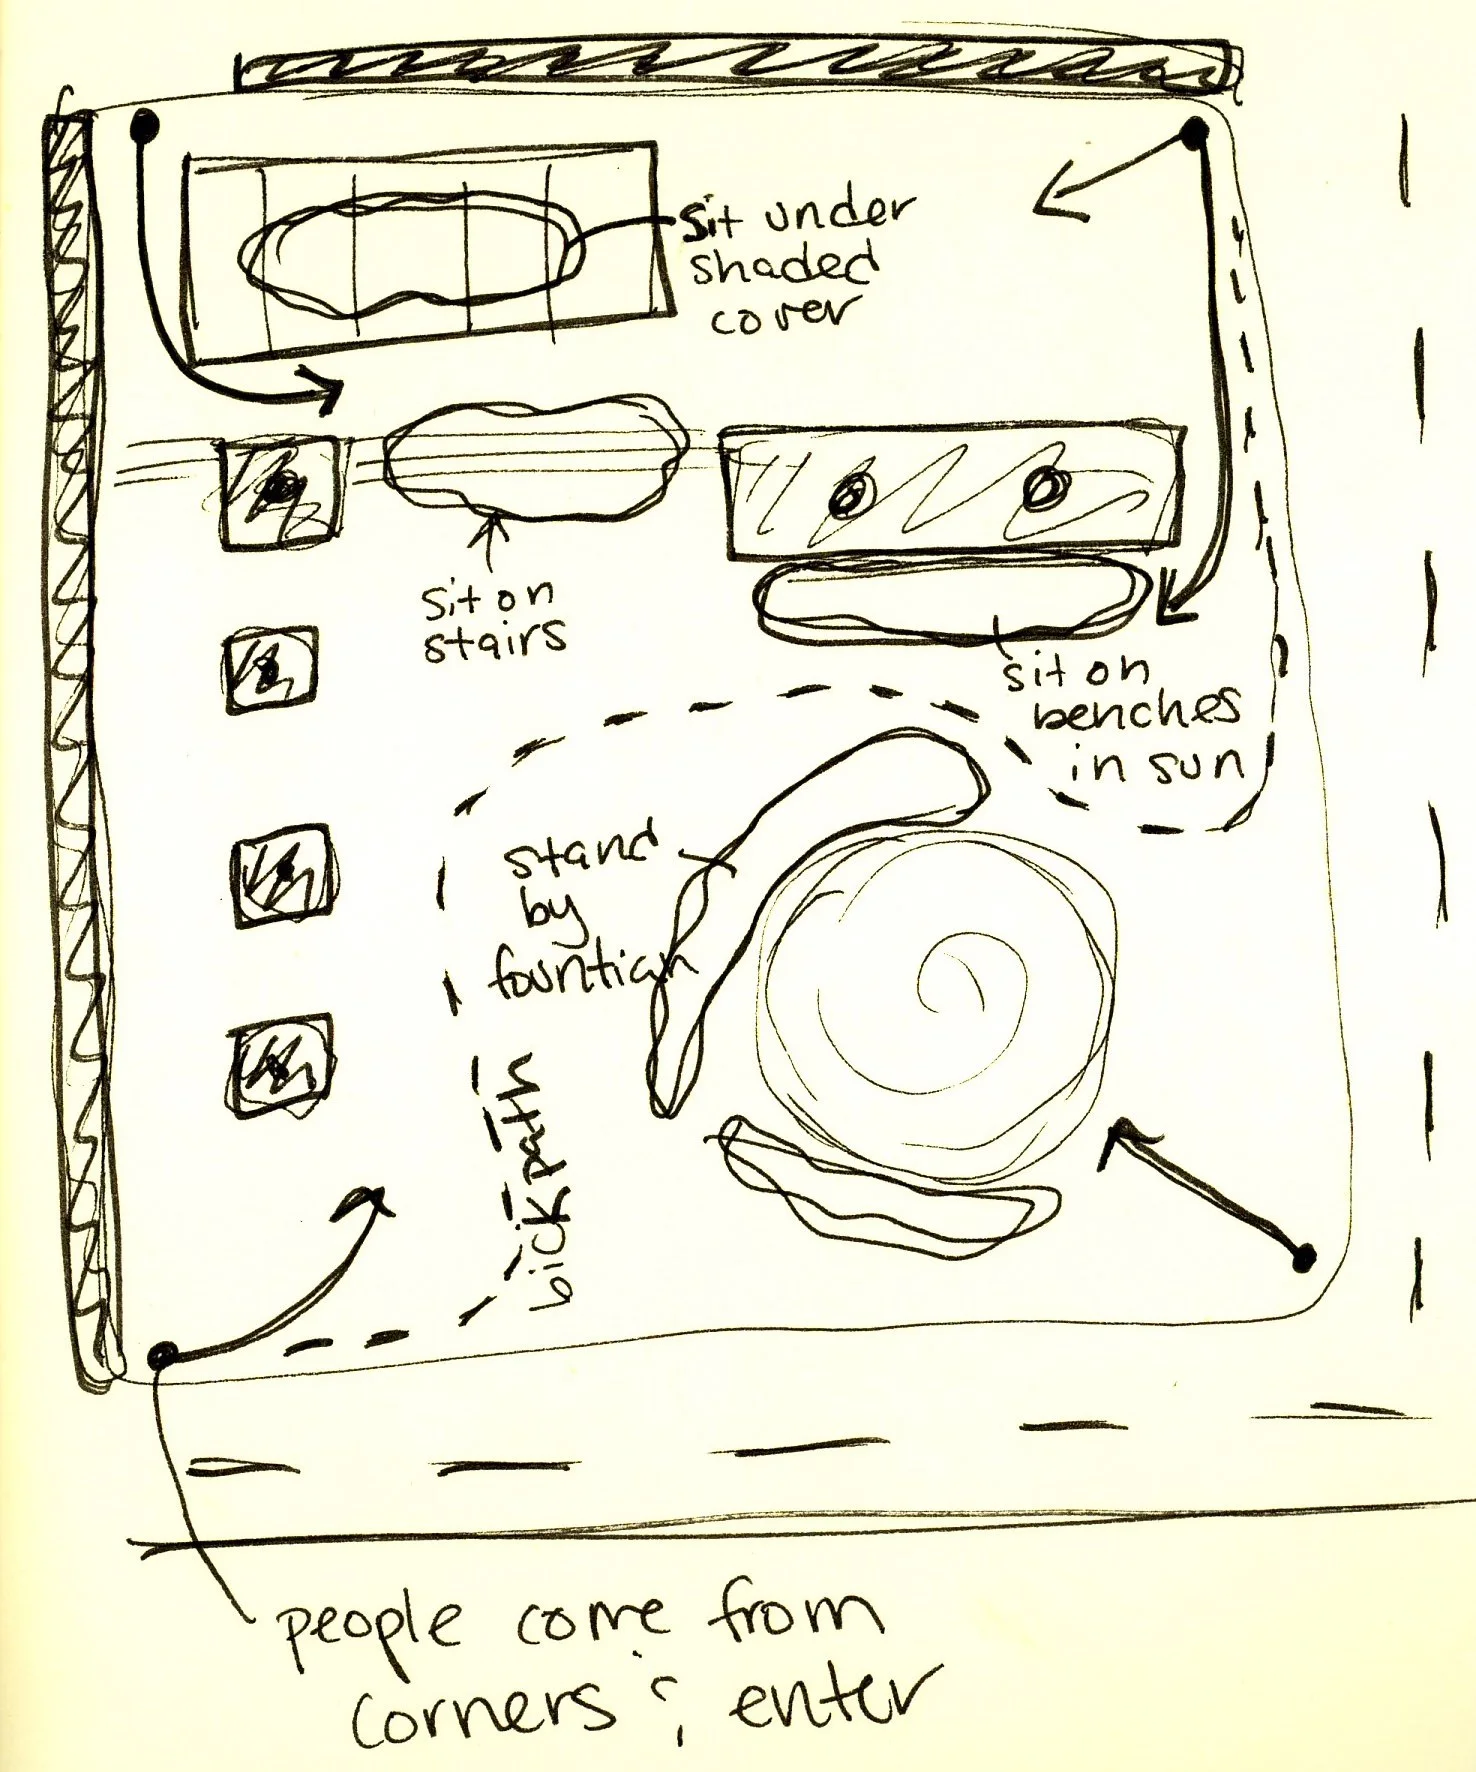 sit under
shaded
cover
sit on
stairs
sit on
benches
in sun
stand
by
fountian
bick path
people come from
corners & enter